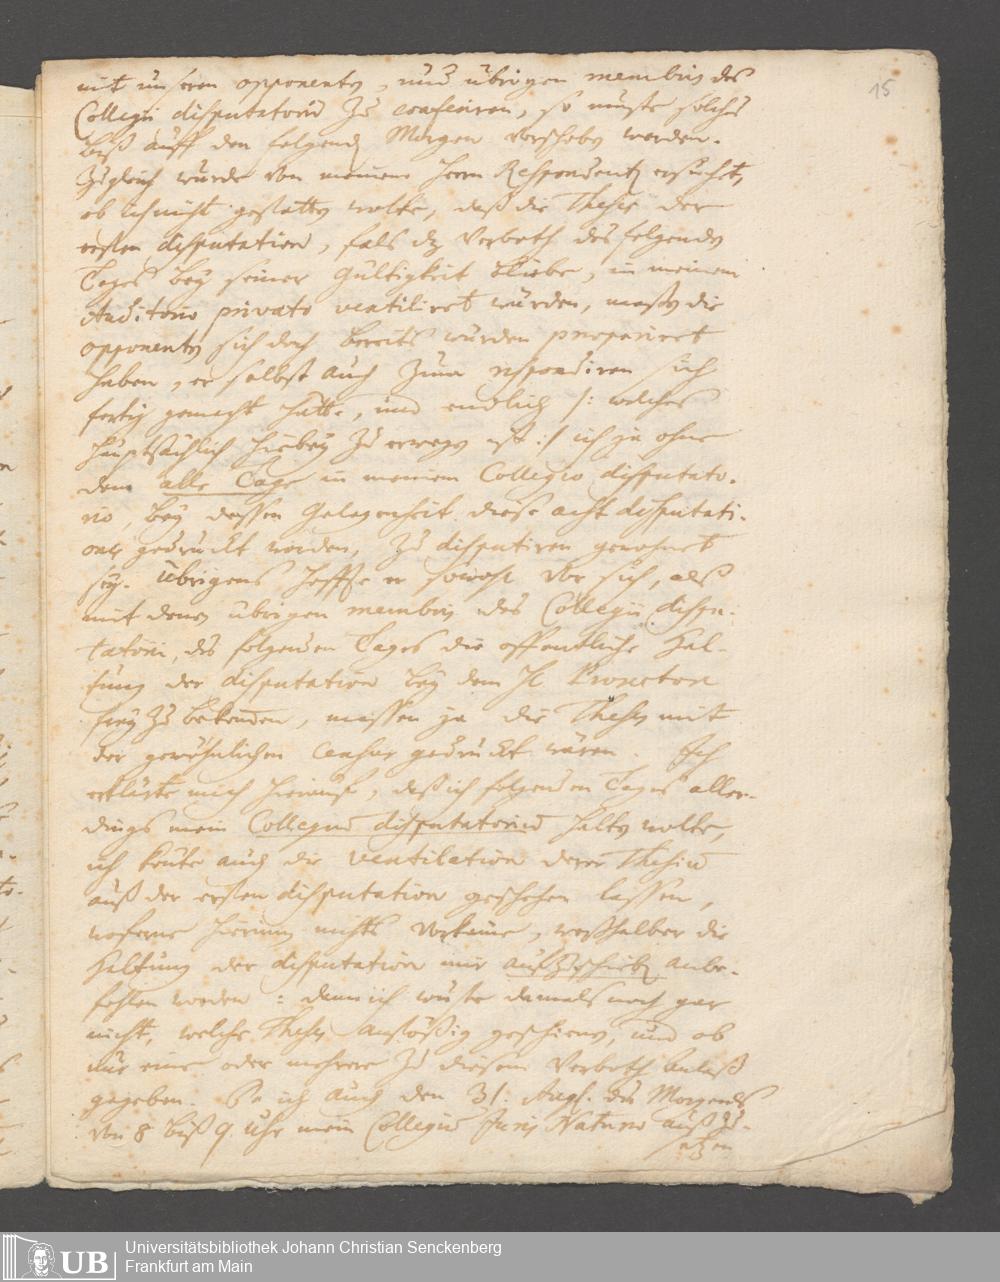 15
mit unseren opponenten, und übrigen membris des
Collegii disputatorii zu conferiren, so muste solches
biß auff den folgend Morgen verschoben werden.
Zugleich wurde von meinem Herrn Respondenten ersuchet,
ob ich nicht gestatten wolte, daß die Theses der
ersten disputation, fals dz Verboth des folgenden
Tages bey seiner Gültigkeit bliebe, in meinem
Auditorio privato ventiliret würden, maßen die
opponenten sich doch bereits würden præpariret
haben, er selbst auch zum respondiren sich
fertig gemacht hätte, und endlich /: welches
hauptsächlich hiebey zu erwegen ist :/ ich ja ohne
dem alle Tage in meinem Collegio disputato-
rio, bey dessen Gelegenheit diese acht disputati-
ones gedruckt worden, zu disputiren gewohnet
sey. Übrigens hoffe er sowohl vor sich, als
mit denen übrigen membris des Collegii dispu-
tatorii, des folgenden Tages die offentliche Hal-
tung der disputation bey dem H. Prorectore
frey zu bekommen, massen ja die Theses mit
der gewöhnlichen Censur gedruckt wären. Ich
erklärte mich hierauf, daß ich folgenden Tages aller-
dings mein Collegium disputatorium halten wolte,
ich könte auch die ventilation derer Thesium
auß der ersten disputation geschehen lassen,
woferne hierinn nichts vorkäme, weßhalber die
Haltung der disputation mir aufzuschieben anbe-
fohlen worden: denn ich wuste damals noch gar
nicht, welche Theses anstößig geschienen, und ob
nur eine oder mehrere zu diesem Verboth anlaß
gegeben. Da ich auch den 31. Aug. des Morgends
von 8 biß 9 Uhr mein Collegium Juris Naturæ auß zu-
setzen
UB Universitätsbibliothek Johann Christian Senckenberg
Frankfurt am Main